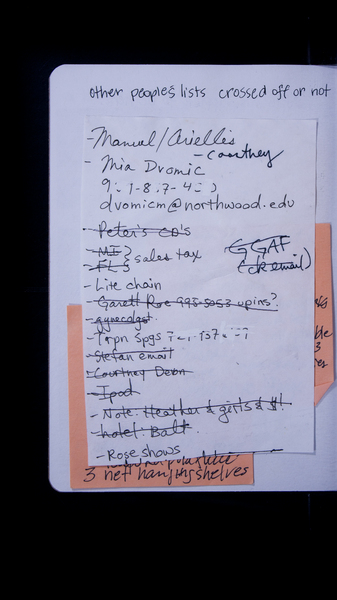 other people's lists crossed off or not
- Manuel/Arielle's
- Courtney
- Mia Dvornic
dvornicm@northwood.edu
- Peter's CD's
- MI } sales tax
- FL
GGAF
(ck email)
- Lite chain
- Garett Roe 995-5053 upins?
- gynecolgst
- Trpn Spgs
- Stefan email
- Courtney Devn
- Ipod
- Note: Heather & girls & $!
- hotel: Balt
- Rose shows
3 net hanging shelves